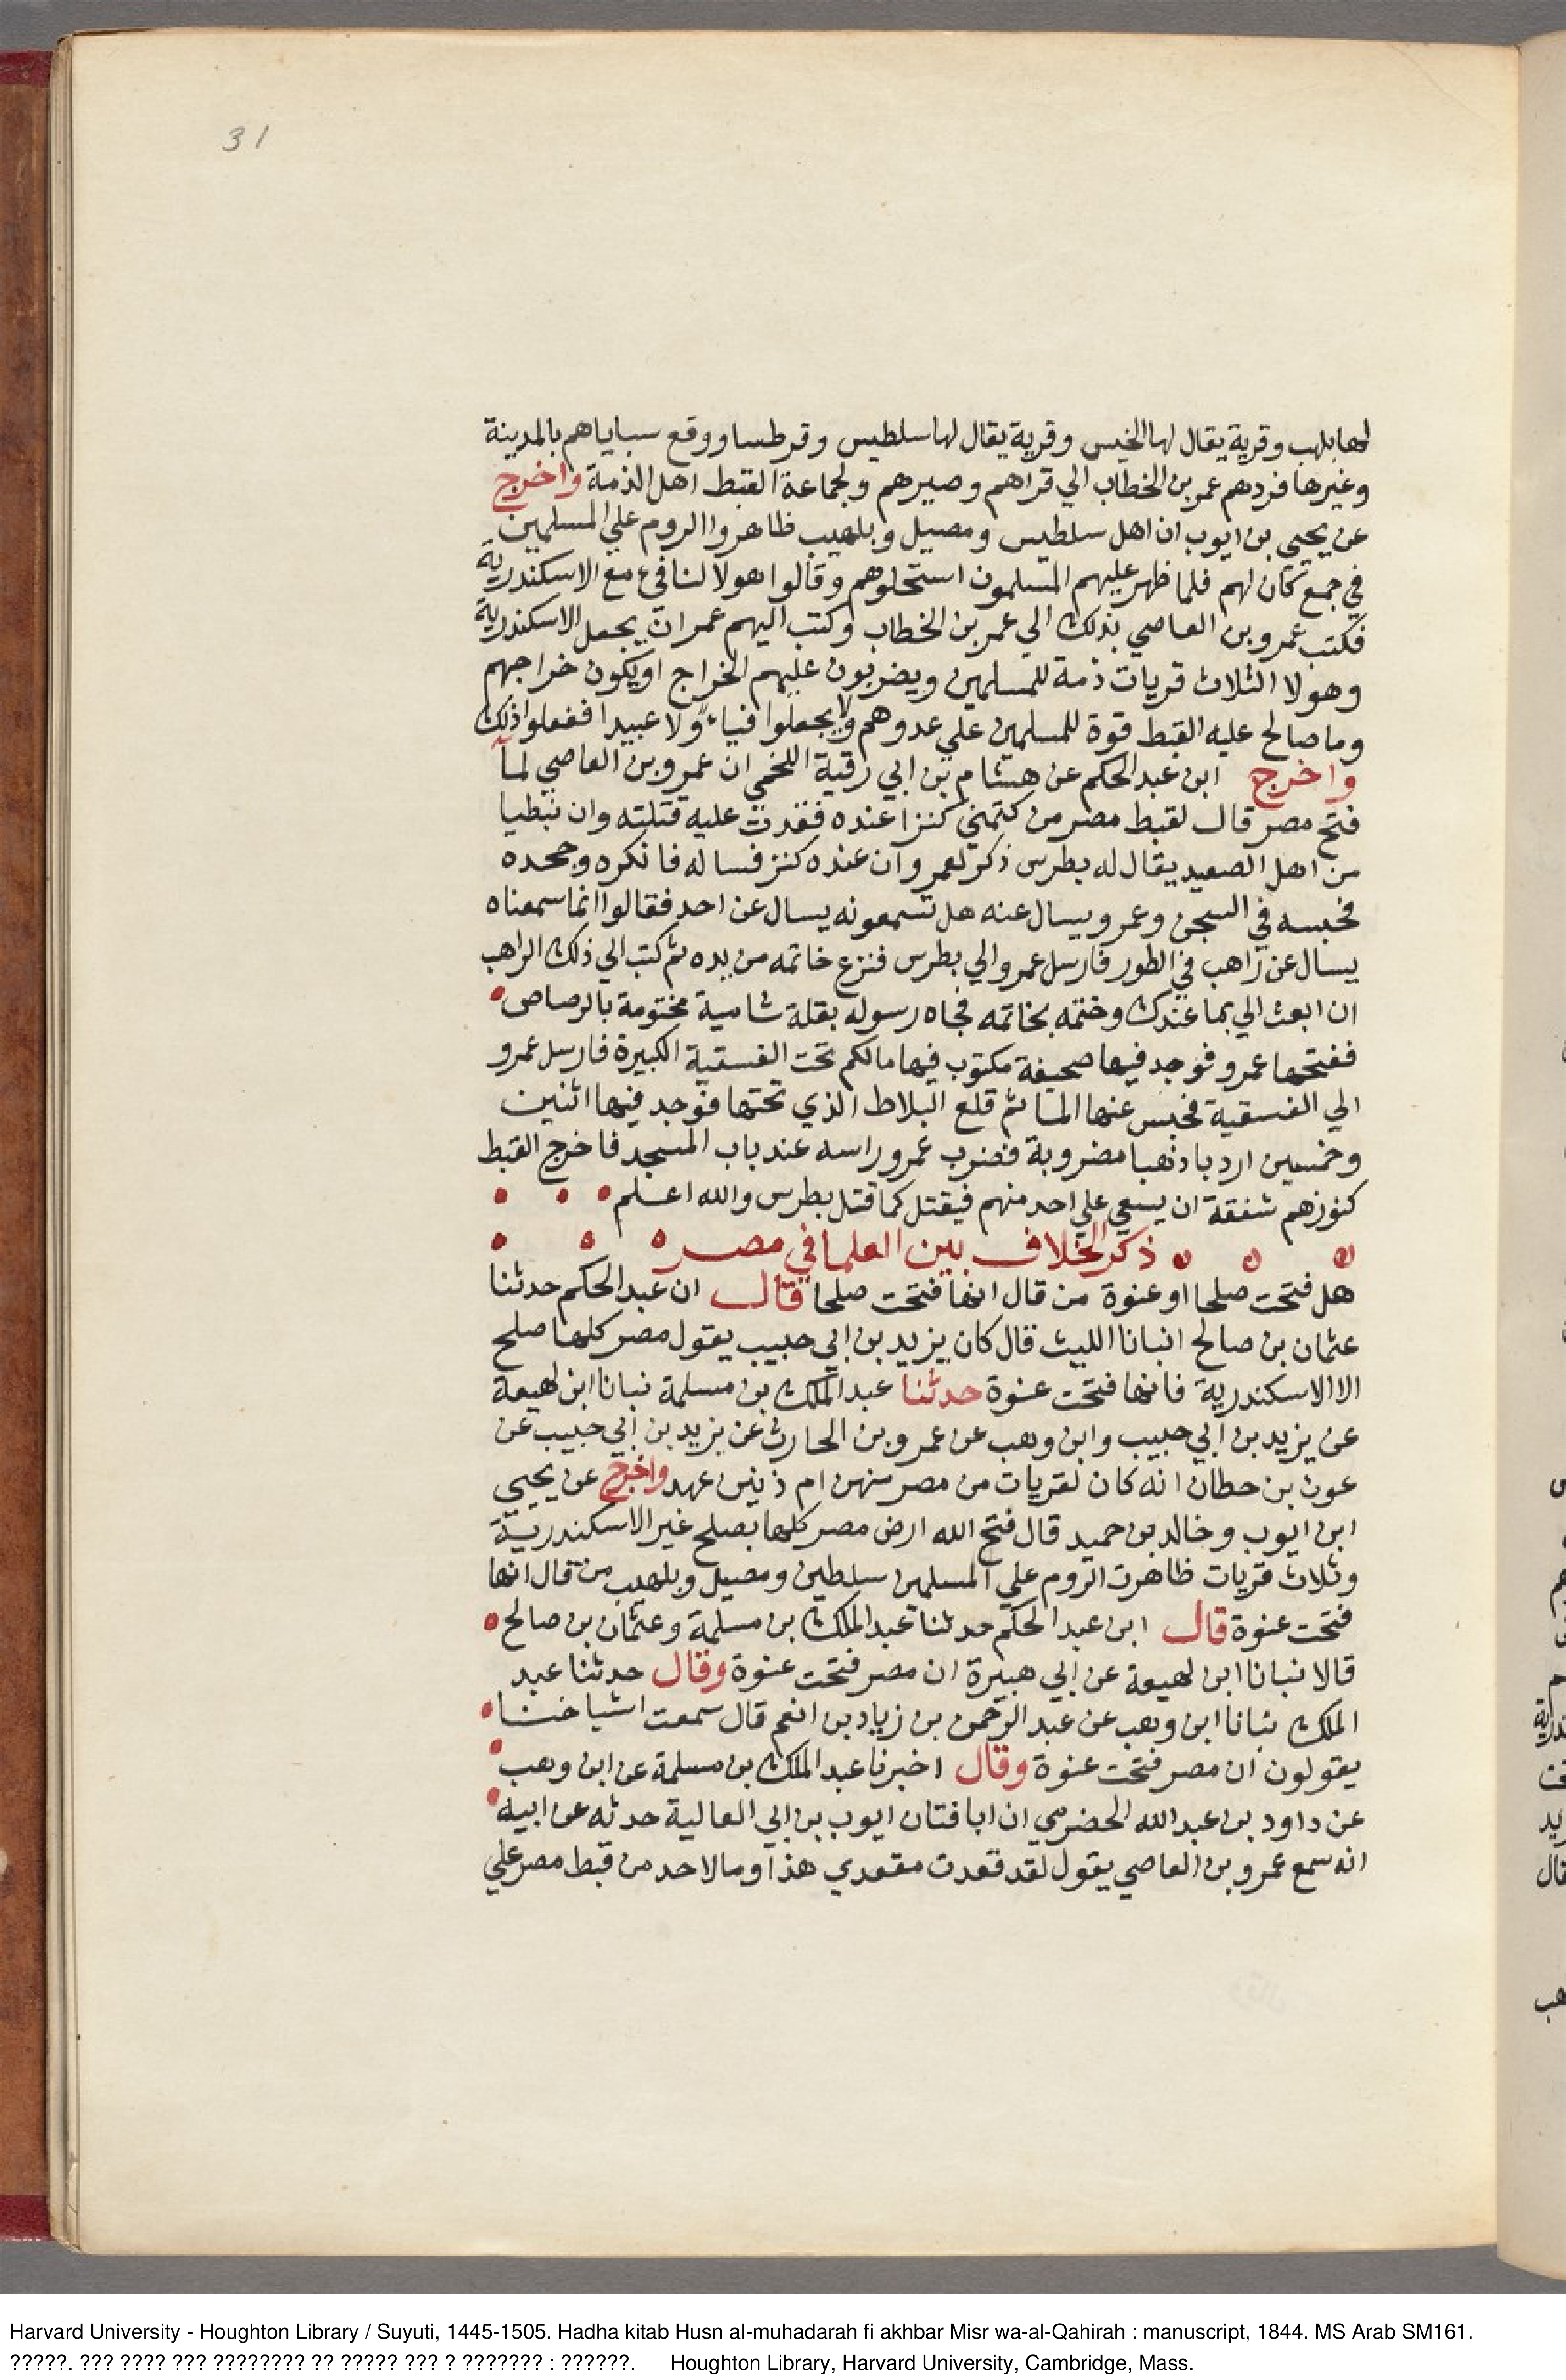 31
لها بلهب وقرية يقال لها الخيس وقرية يقال لها سلطيس وقرطسا ووقع سباياهم بالمدينة
وغيرها فردهم عمر بن الخطاب الي قراهم وصيرهم ولجماعة القبط اهل الذمة واخرج
عن يحيي بن ايوب ان اهل سلطيس ومصيل وبلهيب ظاهروا الروم علي المسلمين
في جمع كان لهم فلما ظهر عليهم المسلمون استحلوهم وقالوا هولا لنا فيء مع الاسكندرية
فكتب عمرو بن العاصي بذلك الي عمر بن الخطاب وكتب اليهم عمر ان يجعل الاسكندرية
وهولا الثلاث قريات ذمة للمسلمين ويضربون عليهم الخراج او يكون خراجهم
وما صالح عليه القبط قوة للمسلمين علي عدوهم ولا يجعلوا فياء ولا عبيدا ففعلوا ذلك
واخرج ابن عبد الحكم عن هشام بن ابي رقية اللخمي ان عمرو بن العاصي لما
فتح مصر قال لقبط مصر من كتمني كنزا عنده فقدرت عليه قتلته وان نبطيا
من اهل الصعيد يقال له بطرس ذكر لعمرو ان عنده كنز فساله فانكره وجحده
فحبسه في السجن وعمرو يسال عنه هل تسمعونه يسال عن احد فقالوا انما سمعناه
يسال عن راهب في الطور فارسل عمرو الي بطرس فنزع خاتمه من يده ثم كتب الي ذلك الراهب
ان ابعث الي بما عندك وختمه بخاتمه فجاه رسوله بقلة شامية مختومة بالرصاص
ففتحها عمرو فوجد فيها صحيفة مكتوب فيها مالكم تحت الفسقية الكبيرة فارسل عمرو
الي الفسقية فحبس عنها الما ثم قلع البلاط الذي تحتها فوجد فيها اثنين
وخمسين اردبا ذهبا مضروبة فضرب عمرو راسه عند باب المسجد فاخرج القبط
كنوزهم شفقة ان يسعي علي احد منهم فيقتل كما قتل بطرس والله اعلم
ذكر الخلاف بين العلما في مصر
هل فتحت صلحا او عنوة من قال انها فتحت صلحا قال ان عبد الحكم حدثنا
عثمان بن صالح انبانا الليث قال كان يزيد بن ابي حبيب يقول مصر كلها صلح
الا الاسكندرية فانها فتحت عنوة حدثنا عبد الملك بن مسلمة نبانا ابن لهيعة
عن يزيد بن ابي حبيب وابن وهب عن عمرو بن الحارث عن يزيد بن ابي حبيب عن
عوث بن حطان انه كان لقريات من مصر منهن ام ذنين عهد واخرج عن يحيي
ابن ايوب وخالد بن حميد قال فتح الله ارض مصر كلها بصلح غير الاسكندرية
وثلاث قريات ظاهرت الروم علي المسلمين سلطين ومصيل وبلهيب من قال انها
فتحت عنوة قال ابن عبد الحكم حدثنا عبد الملك بن مسلمة وعثمان بن صالح
قالا نبانا ابن لهيعة عن ابي هبيرة ان مصر فتحت عنوة وقال حدثنا عبد
الملك نبانا ابن وهب عن عبد الرحمن بن زياد بن انعم قال سمعت اشياخنا
يقولون ان مصر فتحت عنوة وقال اخبرنا عبد الملك بن مسلمة عن ابن وهب
عن داود بن عبد الله الحضرمي ان ابا فتان ايوب بن ابي العالية حدثه عن ابيه
انه سمع عمرو بن العاصي يقول لقد قعدت مقعدي هذا وما لاحد من قبط مصر علي
Harvard University - Houghton Library / Suyuti, 1445-1505. Hadha kitab Husn al-muhadarah fi akhbar Misr wa-al-Qahirah : manuscript, 1844. MS Arab SM161.
?????. ??? ???? ??? ???????? ?? ????? ??? ? ??????? : ??????. Houghton Library, Harvard University, Cambridge, Mass.